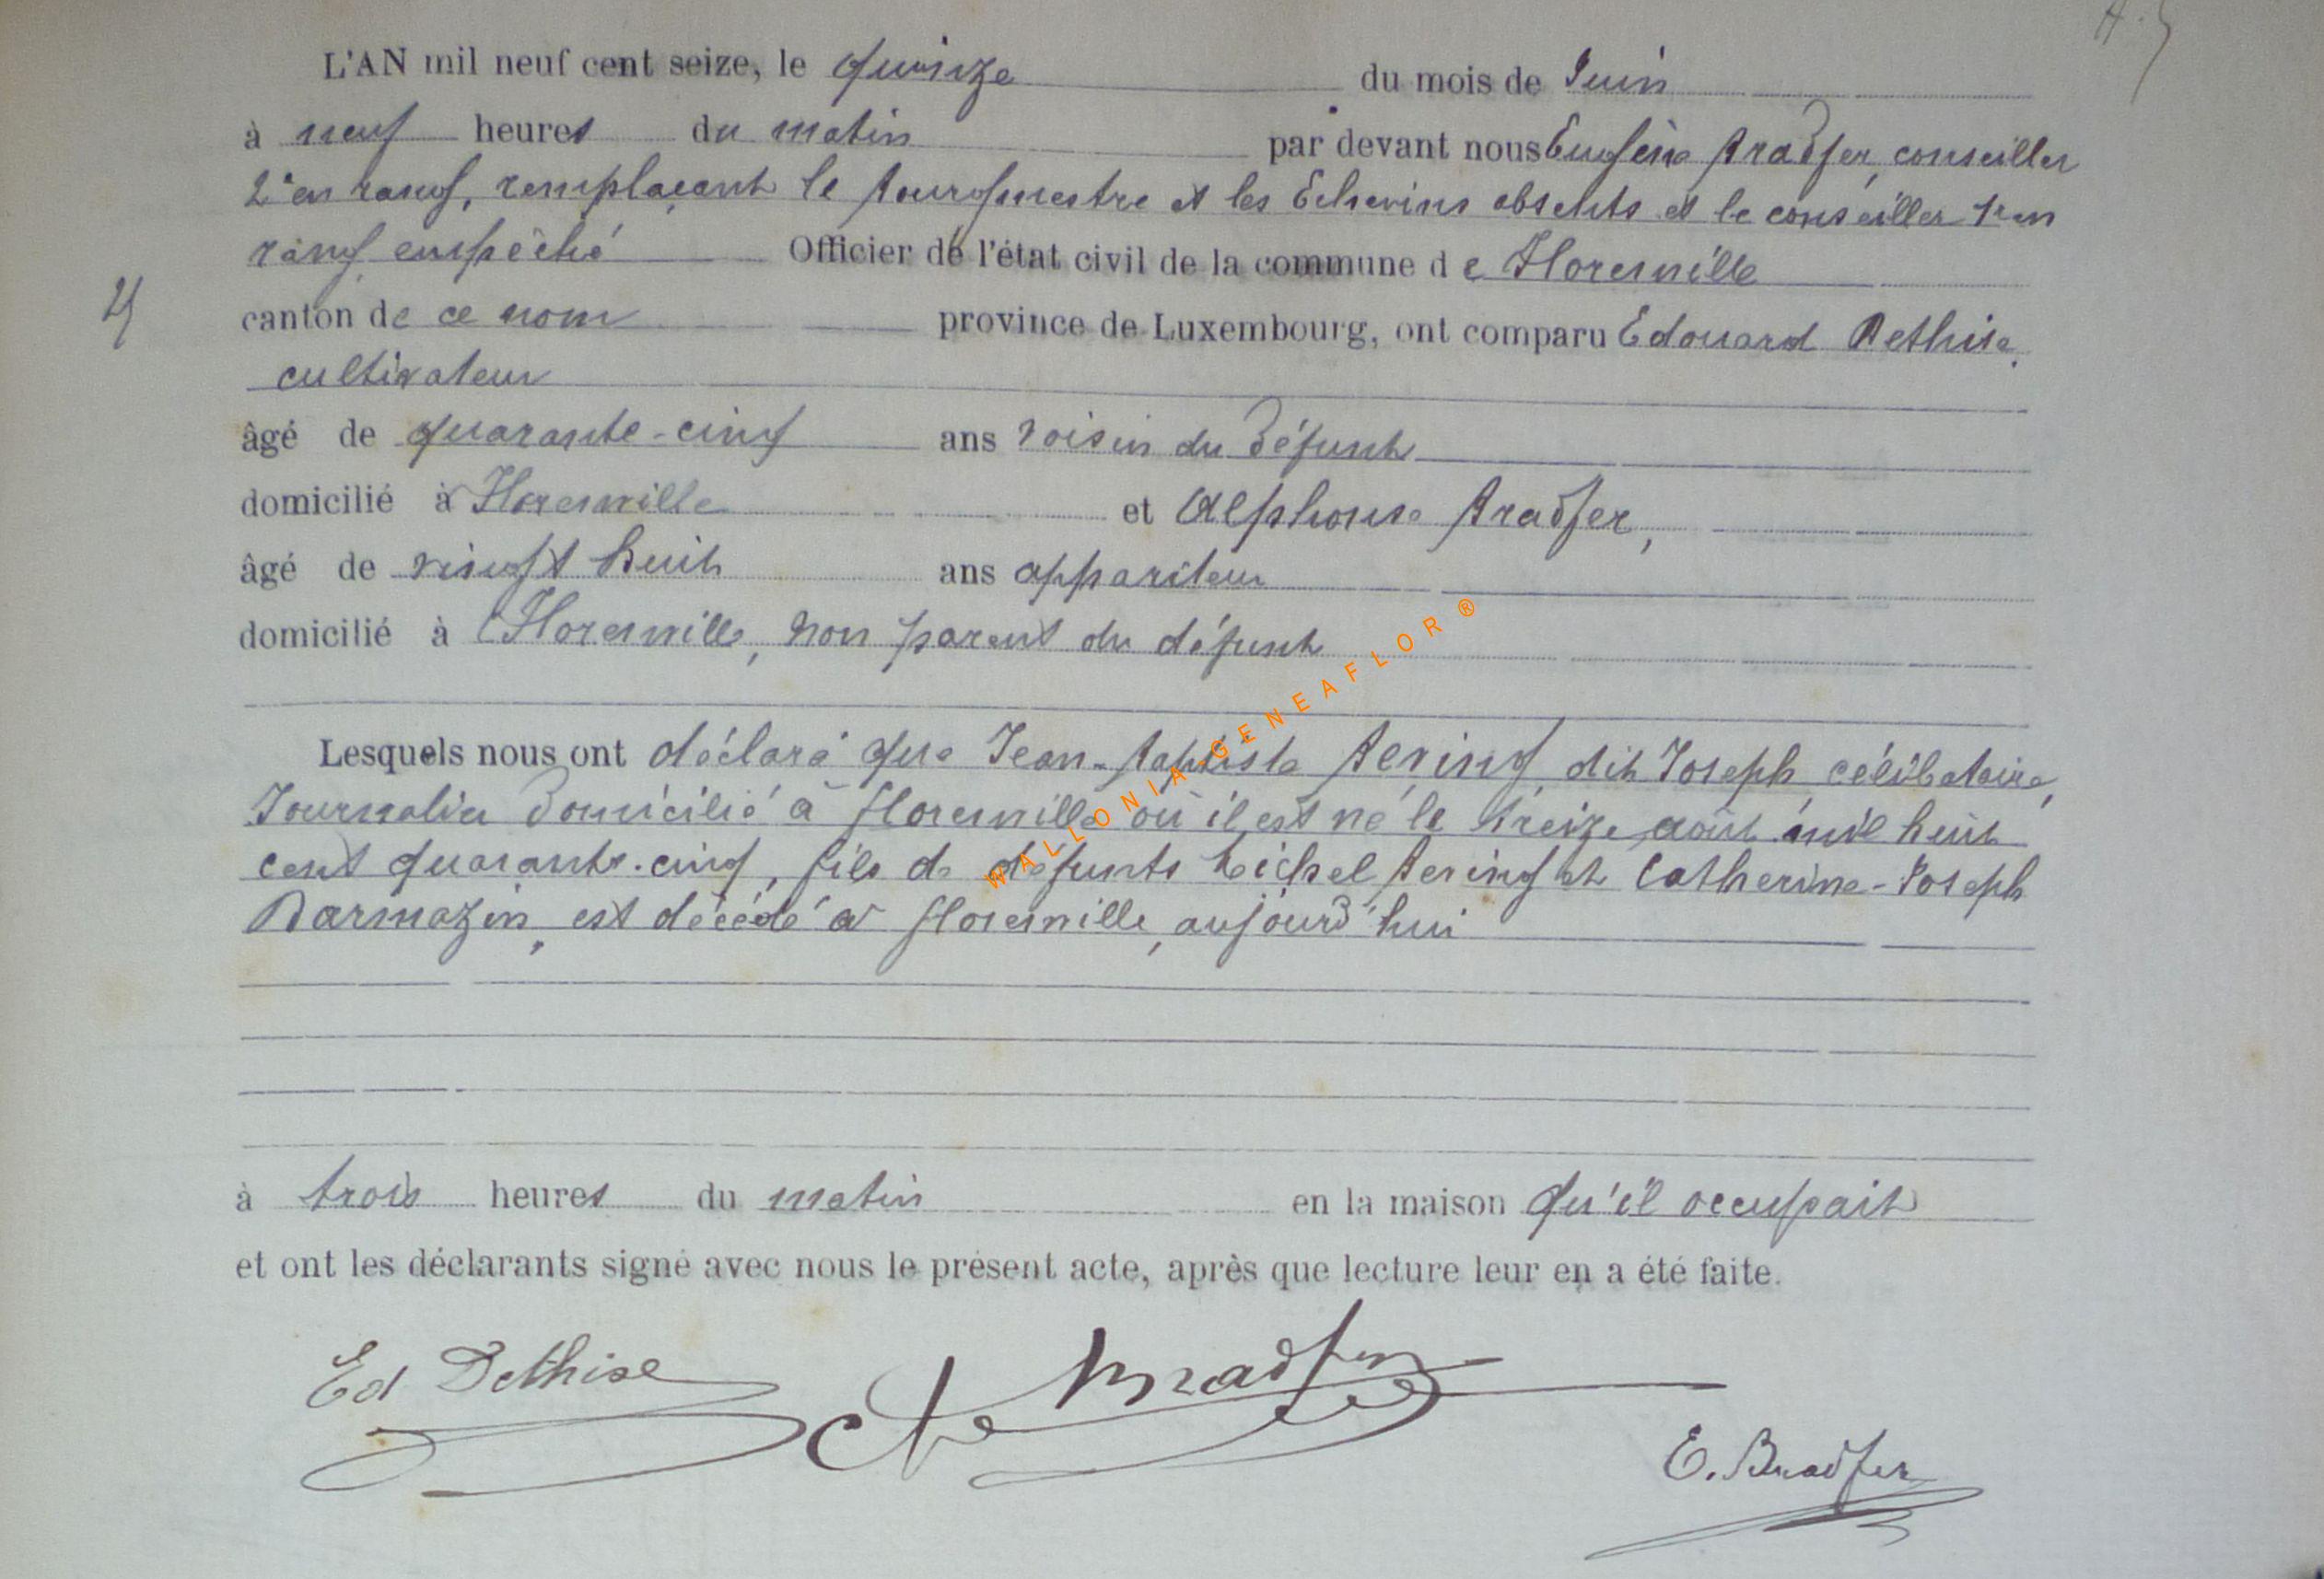 L'AN mil neuf cent seize, le quinze du mois de Juin
à neuf heures du matin par devant nous Eugène Bradfer, conseiller
2e en rang, remplaçant le bourgmestre et les Echevins absents et le conseiller 1er en
rang empêché Officier de l'état civil de la commune de Florenville
canton de ce nom province de Luxembourg, ont comparu Edouard Dethise,
cultivateur
âgé de quarante-cinq ans voisin du défunt
domicilié à Florenville et Alphonse Bradfer,
âgé de vingt huit ans appariteur
domicilié à Florenville, non parent du défunt
Lesquels nous ont déclaré que Jean-Baptiste Bering dit Joseph, célibataire,
Journalier domicilié à Florenville où il est né le treize août mil huit
cent quarante-cinq, fils de défunts Michel Bering et Catherine-Joseph
Darmazin, est décédé à Florenville, aujourd'hui
à trois heures du matin en la maison qu'il occupait
et ont les déclarants signé avec nous le présent acte, après que lecture leur en a été faite.
Ed Dethise
Bradfer
E. Bradfer
WALLONIA GENEAFLOR ®